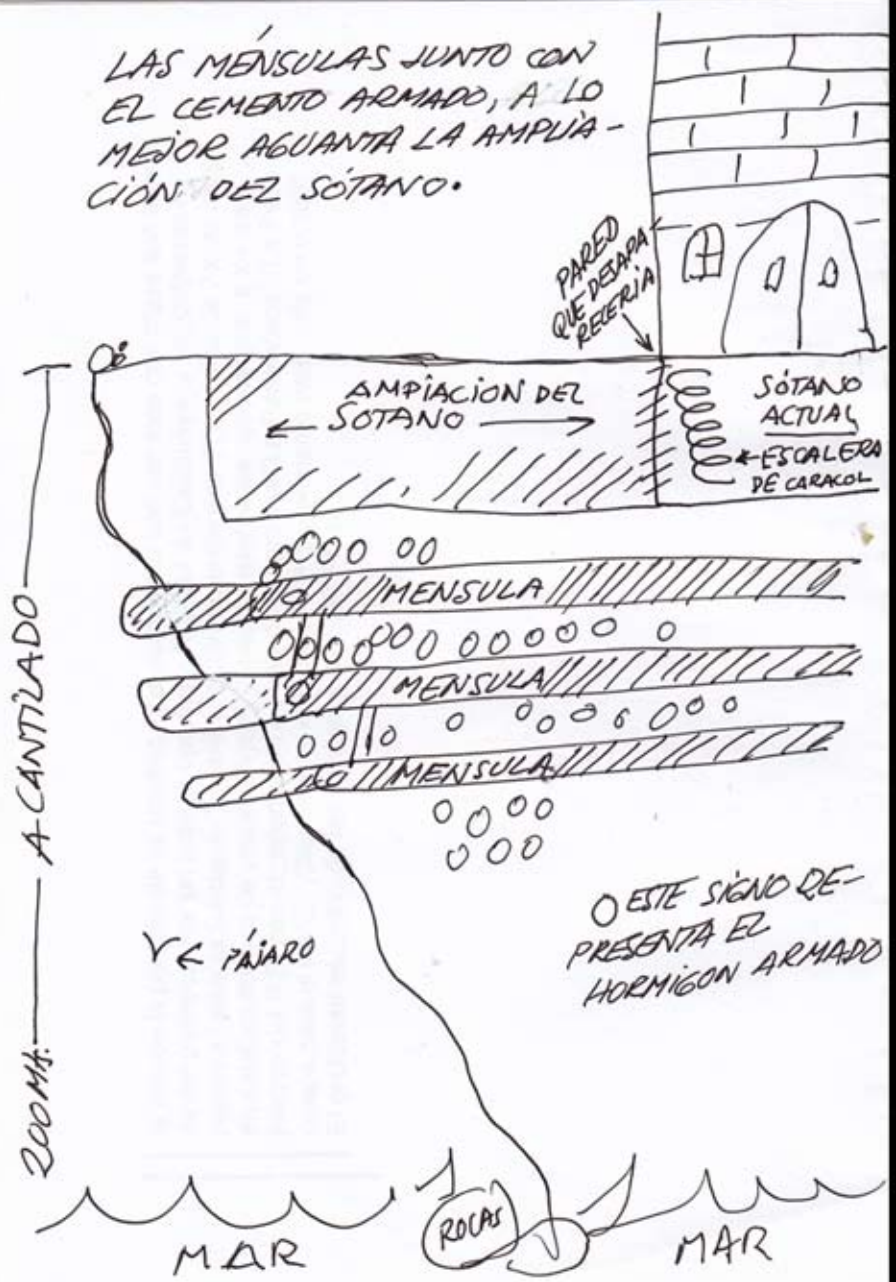 LAS MÉNSULAS JUNTO CON
EL CEMENTO ARMADO, A LO
MEJOR AGUANTA LA AMPLIA-
CIÓN DEL SÓTANO.
PARED
QUE DESAPA
RECERÍA
AMPIACION DEL
SOTANO
SÓTANO
ACTUAL
ESCALERA
DE CARACOL
MENSULA
MENSULA
MENSULA
200 Mt. ACANTILADO
PÁJARO
O ESTE SIGNO RE-
PRESENTA EL
HORMIGON ARMADO
ROCAS
MAR
MAR